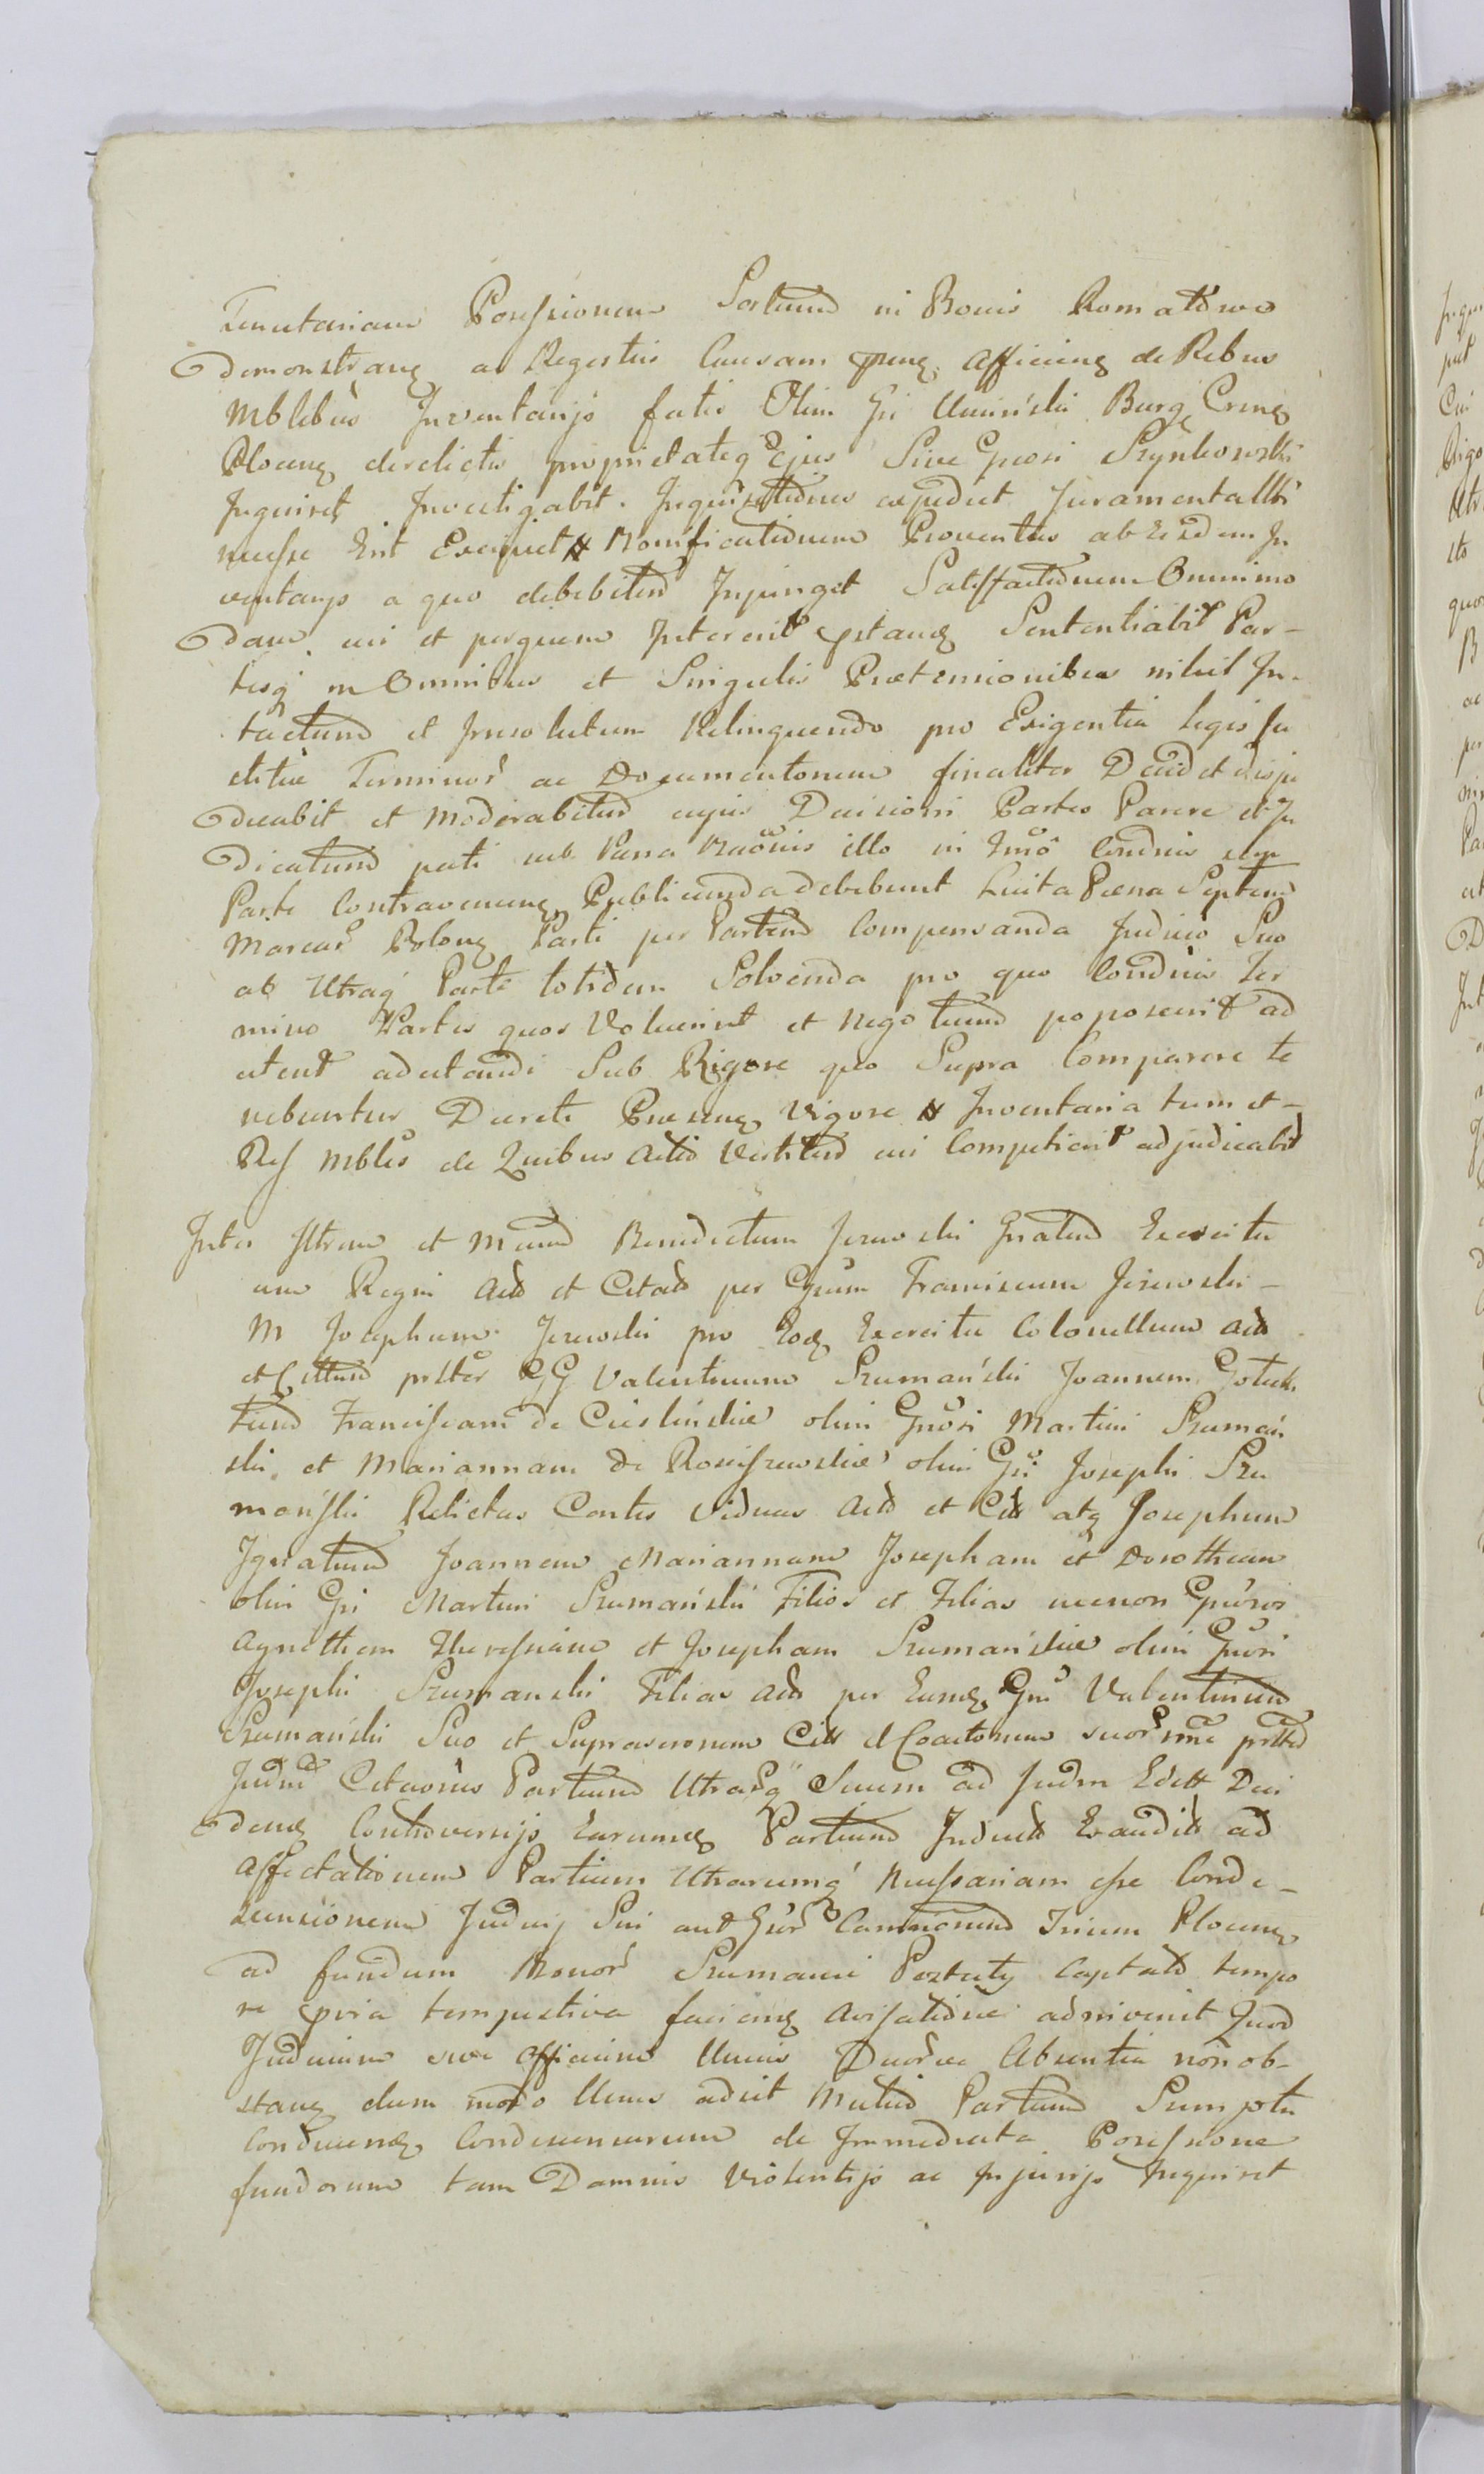 Tenutariam Possessionem Sortium in Bonis Romatowo
demonstranę a Regestris Causam pręnę Afficienę de Rebus
Mblibus Inventarijs fatis Olim Gsi Umiński Burgę Crenę
Plocenę derelictis proprietateq Ejus Sive Gnosi Szynkowski
Inquiret Investigabit. Inquisitiones expediet Juramentalłr
necesse Erit Exequet Bonificationem Proventus ab Eisdem In
ventarijs a quo debebitur Injunget Satisfactionem Omnimo
dam cui et per quem Intererit Sententiabit Par-
tesq in Omnibus et Singulis Praetensionibus nihil In-
tactum et Insolutum Relinquendo pro Exigentia Legis Ju
stitiae Terminor ac Documentorum finaliter Decidet dijju
dicabit et Moderabitur cujus Decisioni Partes Parere et Ju
dicatum pati sub Paena illo in Condnis
Parte Contravenienę Publicunda debebunt Luita Paena Septem
Marcar Polonę Parti per Partem Compensanda Judicio Suo
ab Utraq Parte totidem Solvenda pro quo Condnis Ter
mino Partes quos Voluerint et Negotium poposcerit ad
citent adcitandi Sub Rigore quo Supra Comparere te
nebuntur Decreti Praesenę Vigore Inventaria tum et-
Res Mbles de Quibus Actio Vertitur cui Competierit adjudicabit
Inter Iltrem et Mcum Benedictum Jezewski Gnalem Exercitu
um Regni Act et Citat per Gnum Franciscum Jezewski-
M Josephum Jezewski pro Eodę Exercitu Colonellum Act
et Cittum prlter GG Valentinum Szumański Joannem
Franciscam de Cieslińskie olim Gnosi Martini Szumań
ski et Mariannam de Rosciszewskie olim Gsi Josephi Szu
mański Relictas Contes Viduas Act et Citt atq Josephum
Ignatium Joannem Mariannam Josepham et Dorotheam
olim Gsi Martini Szumański Filios et Filias necnon Gnosos
Agnethem Theresiam et Josepham Szumańskie olim Gnosi
Josephi Szumanski Filias Act per Eundę Gnu Valentinum
Szumański Suo et Suprascrorum Citt et Coactorum suor
Judm Citaonis Partium Utraq Suum ad Judm Edett Deci
denę Controversijs Earumdę Partium Inductt Exaudit ad
Affectationem Partium Utrarumq Necessariam esse Conde-
scensionem Judicij Sui aut Camrionum Trium Plocenę
ad fundum Bonor Szumanie Pustuty Captato tempo
re pvia tempestiva facienę Avisatione adnivenit Quod
Judicium sive Officium Unius Duorve Absentia non ob-
stanę dum modo Unus adsit Mutuo Partium Sumptu
Conducenę Condescensurum de Immediata Possessione
fundorum tam Damnis Violentijs ac Injurijs Inquiret